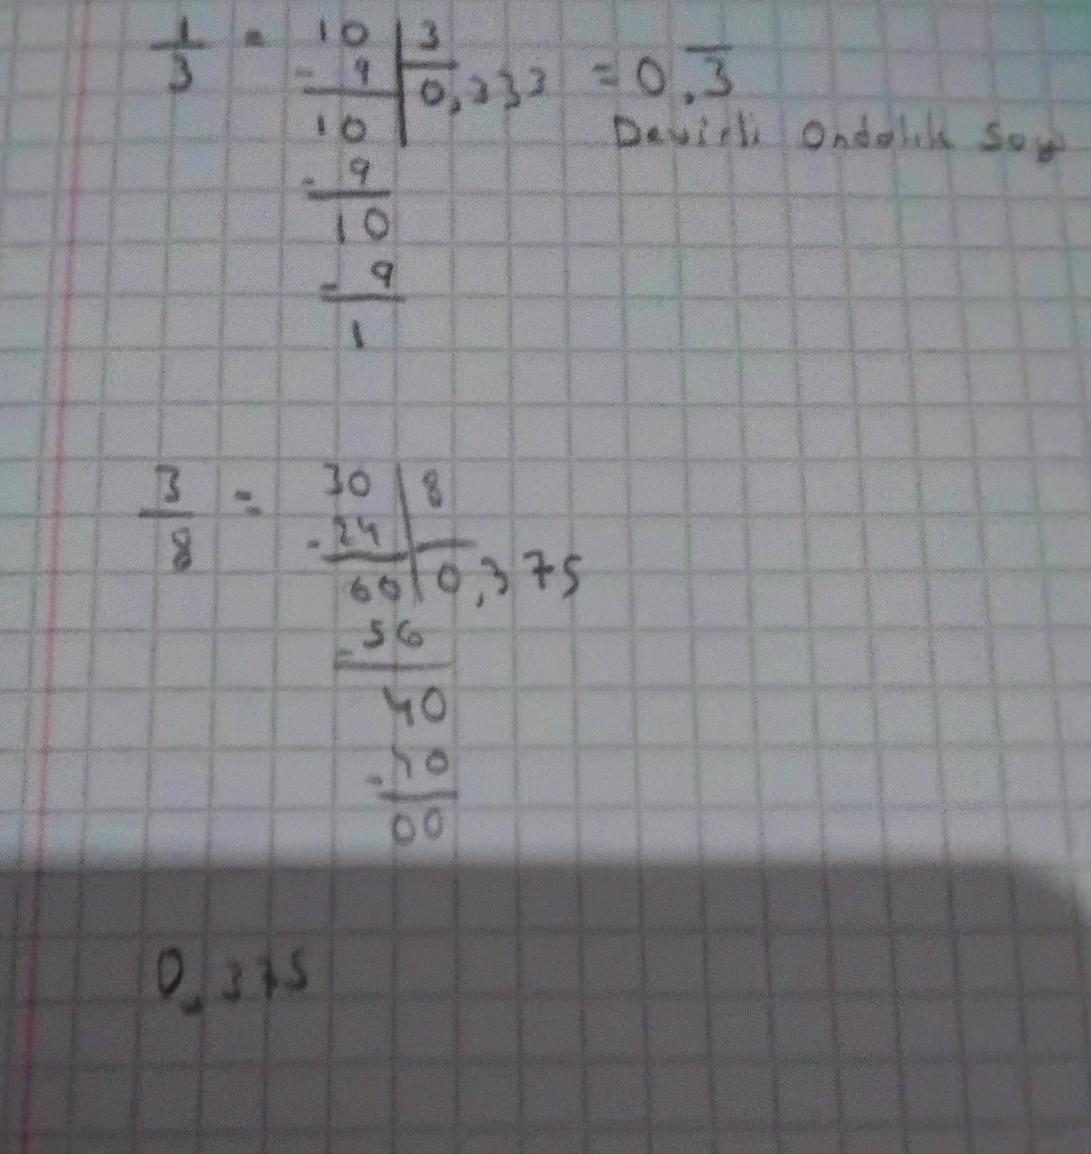 1/3 = 10 | 3
- 9 | 0,333 = 0,3̅
10 Devirli Ondalık Say
- 9
10
- 9
1
3/8 = 30 | 8
- 24
60 | 0,375
- 56
40
- 40
00
0,375